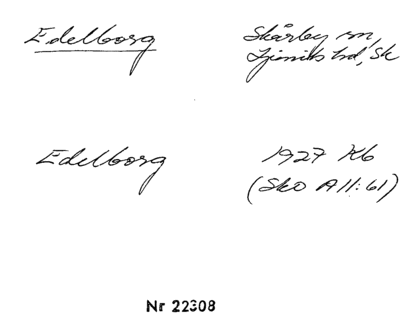 Edelborg
Skårby sn,
Ljunits hd, Sk
Edelborg
1927 Kb
(Sko A II:61)
Nr 22308